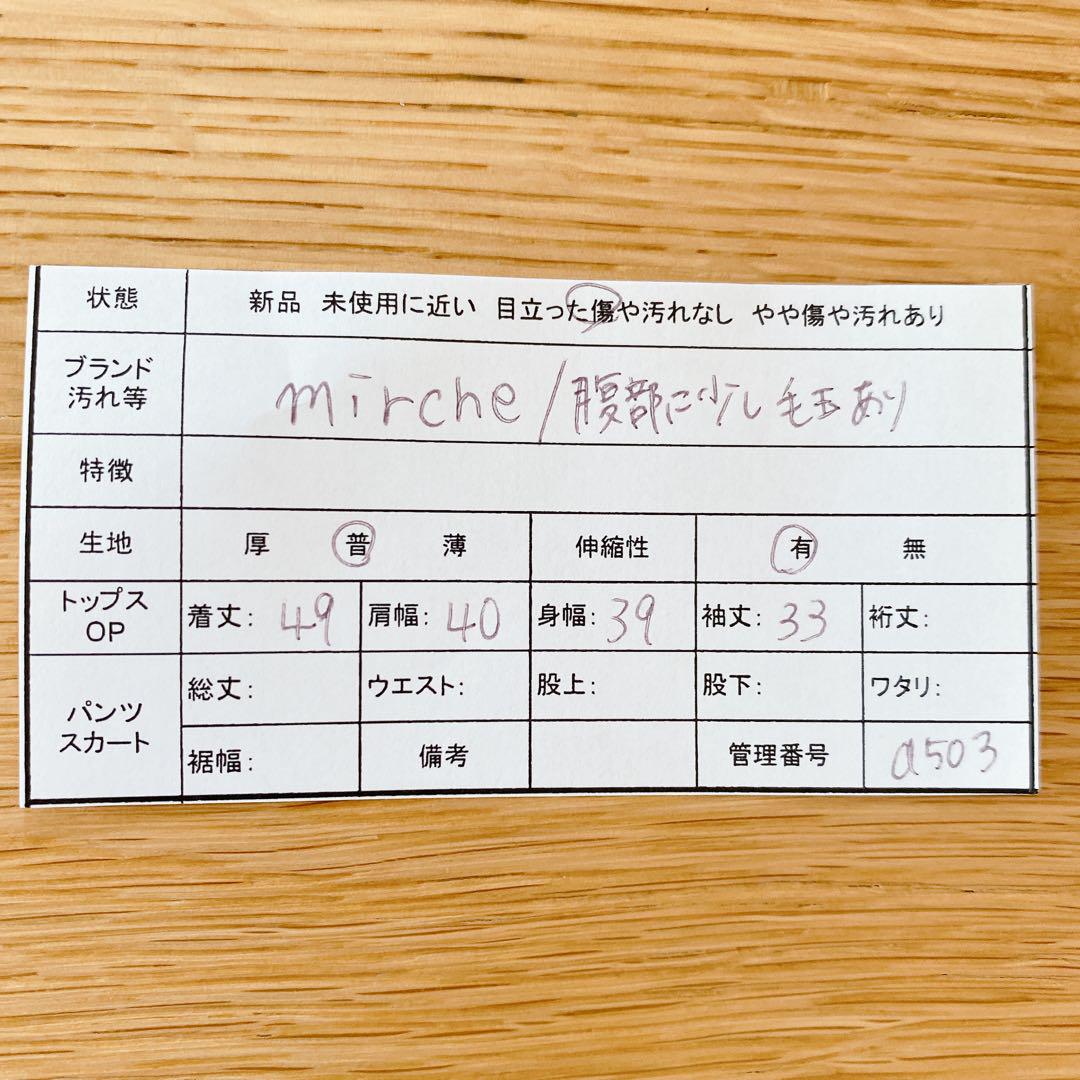 状態 新品 未使用に近い 目立った傷や汚れなし やや傷や汚れあり
ブランド
汚れ等
mirche/腹部に少し毛玉あり
特徴
生地 厚 普 薄 伸縮性 有 無
トップス
OP
着丈: 49 肩幅: 40 身幅: 39 袖丈: 33 裄丈:
パンツ
スカート
総丈: ウエスト: 股上: 股下: ワタリ:
裾幅: 備考 管理番号 a503